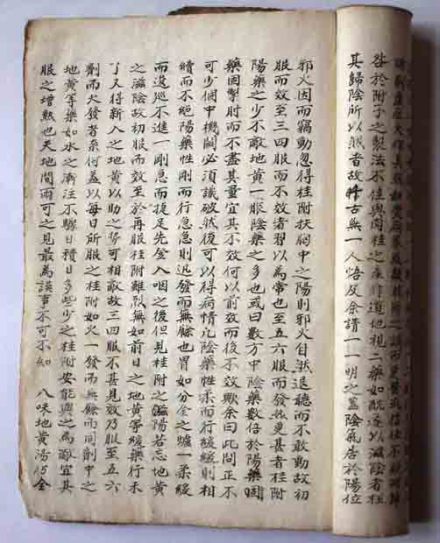 咎於附子之製法不佳與肉桂之產非道地視二藥如酖遂以滋陰者杜
其歸陰所以服者故千古無一人悟及余請一一明之蓋陰氣居於陽位
邪火因而竊動忽得桂附扶祠中之陽則邪火自然退聽而不敢動故初
服而效至三四服而不效者習以為常也至五六服而發燥更甚者桂附
陽藥之少不敵地黃一服陰藥之多也或曰數方中陰藥數倍於陽藥固
藥因掣肘而不盡其量宜其不效何以前效而後不效歟余曰此問正不
可少個中機關必須識破然後可以得病情凡陰藥性柔而行緩緩則相
續而不絕陽藥性剛而行急急則迅發而無餘也冐如分金之爐一柔緩
而逡巡不進一剛急而捷足先登入咽之後但見桂附之溫陽若忘地黃
之滋陰故初服而效至於再服桂附雖散無如前日之地黃等緩藥行未
了又得新入之地黃以助之勢可相敵故三四服不甚見效乃服至五六
劑而火發者奈何蓋以每日所服之桂附如火一發而無餘而同劑中之
地黃等藥如水之漸注不驟日積日多些少之桂附安能與之為敵宜其
服之增熱也天地間兩可之見最為誤事不可不知 八味地黃湯乃全